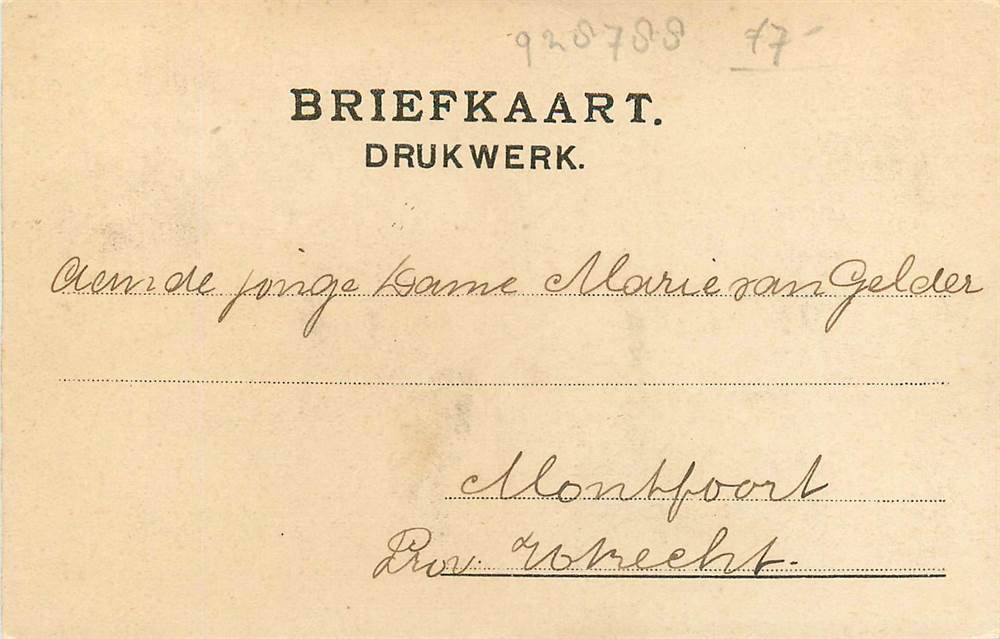 928788 17-
BRIEFKAART.
DRUKWERK.
Aan de jonge Dame Marie van Gelder
Montfoort
Prov. Utrecht.